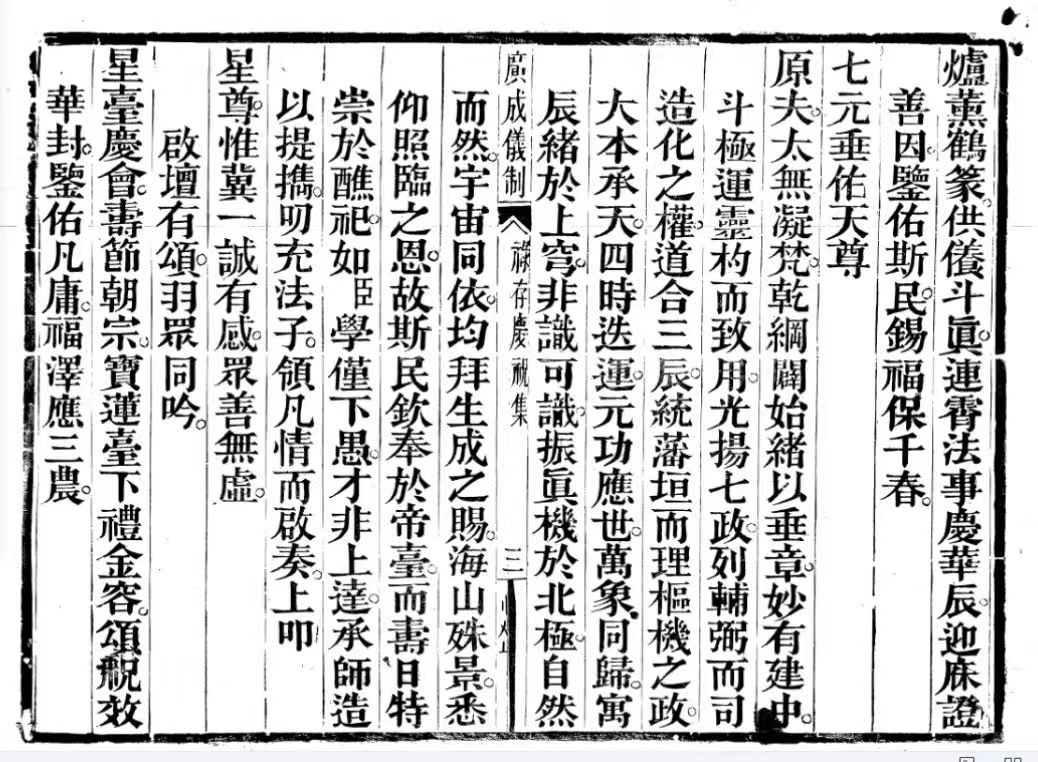 爐薰鶴篆。供儀斗眞。連霄法事慶華辰。迎庥證
善因。鑒佑斯民。錫福保千春。
七元垂佑天尊
原夫。太無凝梵。乾綱闢始緒以垂章。妙有建中。
斗極運靈杓而致用。光揚七政。列輔弼而司
造化之權。道合三辰。統藩垣而理樞機之政。
大本承天。四時迭運。元功應世。萬象同歸。寓
辰緒於上穹。非識可識。振眞機於北極。自然
廣成儀制
祿存慶祝集
三
而然。宇宙同依。均拜生成之賜。海山姝景。悉
仰照臨之恩。故斯民欽奉於帝臺。而壽日特
崇於醮祀。如臣 學僅下愚。才非上達。承師造
以提擕。叨充法子。領凡情而啟奏。上叩
星尊。惟冀一誠有感。眾善無虛。
啟壇有頌。羽眾同吟。
星臺慶會。壽節朝宗。寶蓮臺下禮金容。頌祝效
華封。鑒佑凡庸。福澤應三農。